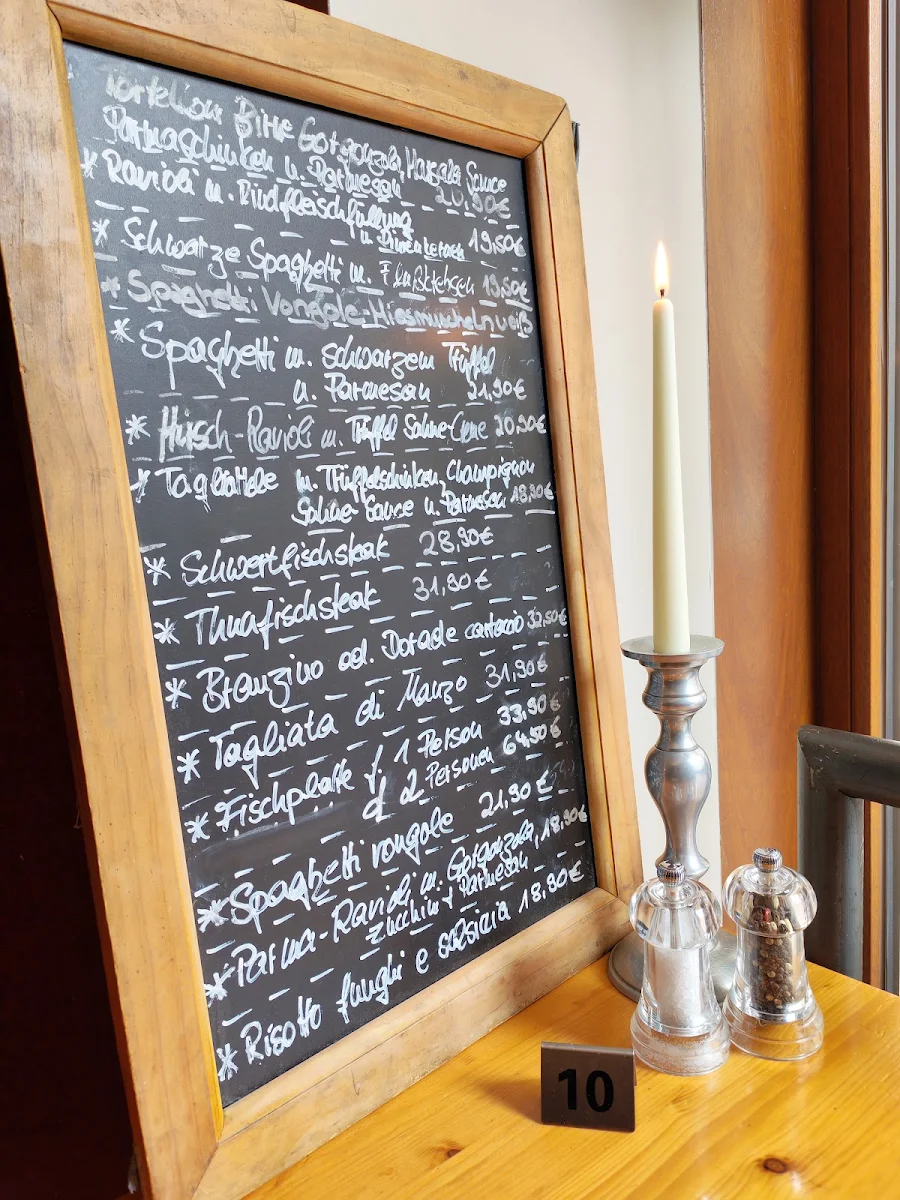 Tortelloni Birne Gorgonzola, Marsala Sauce
Parmaschinken u. Parmesan 20,90€
* Ravioli m. Rindfleischfüllung
u. Pinienkernen 19,50€
* Schwarze Spaghetti m. Flußkrebsen 19,50€
* Spaghetti Vongole-Miesmuscheln weiß
* Spaghetti m. schwarzem Trüffel
u. Parmesan 21,90€
* Hirsch-Ravioli m. Trüffel Sahne-Creme 20,90€
* Tagliatelle m. Trüffelschinken, Champignon
Sahne Sauce u. Parmesan 18,90€
* Schwertfischsteak 28,90€
* Thunafischsteak 31,90€
* Branzino od. Dorade cartoccio 32,50€
* Tagliata di Manzo 31,90€
* Fischplatte f 1 Person 33,90€
f 2 Personen 64,50€
* Spaghetti vongole 21,90€
* Parma-Ravioli m. Gorgonzola, 18,90€
Zucchini & Parmesan
* Risotto funghi e salsicia 18,90€
10